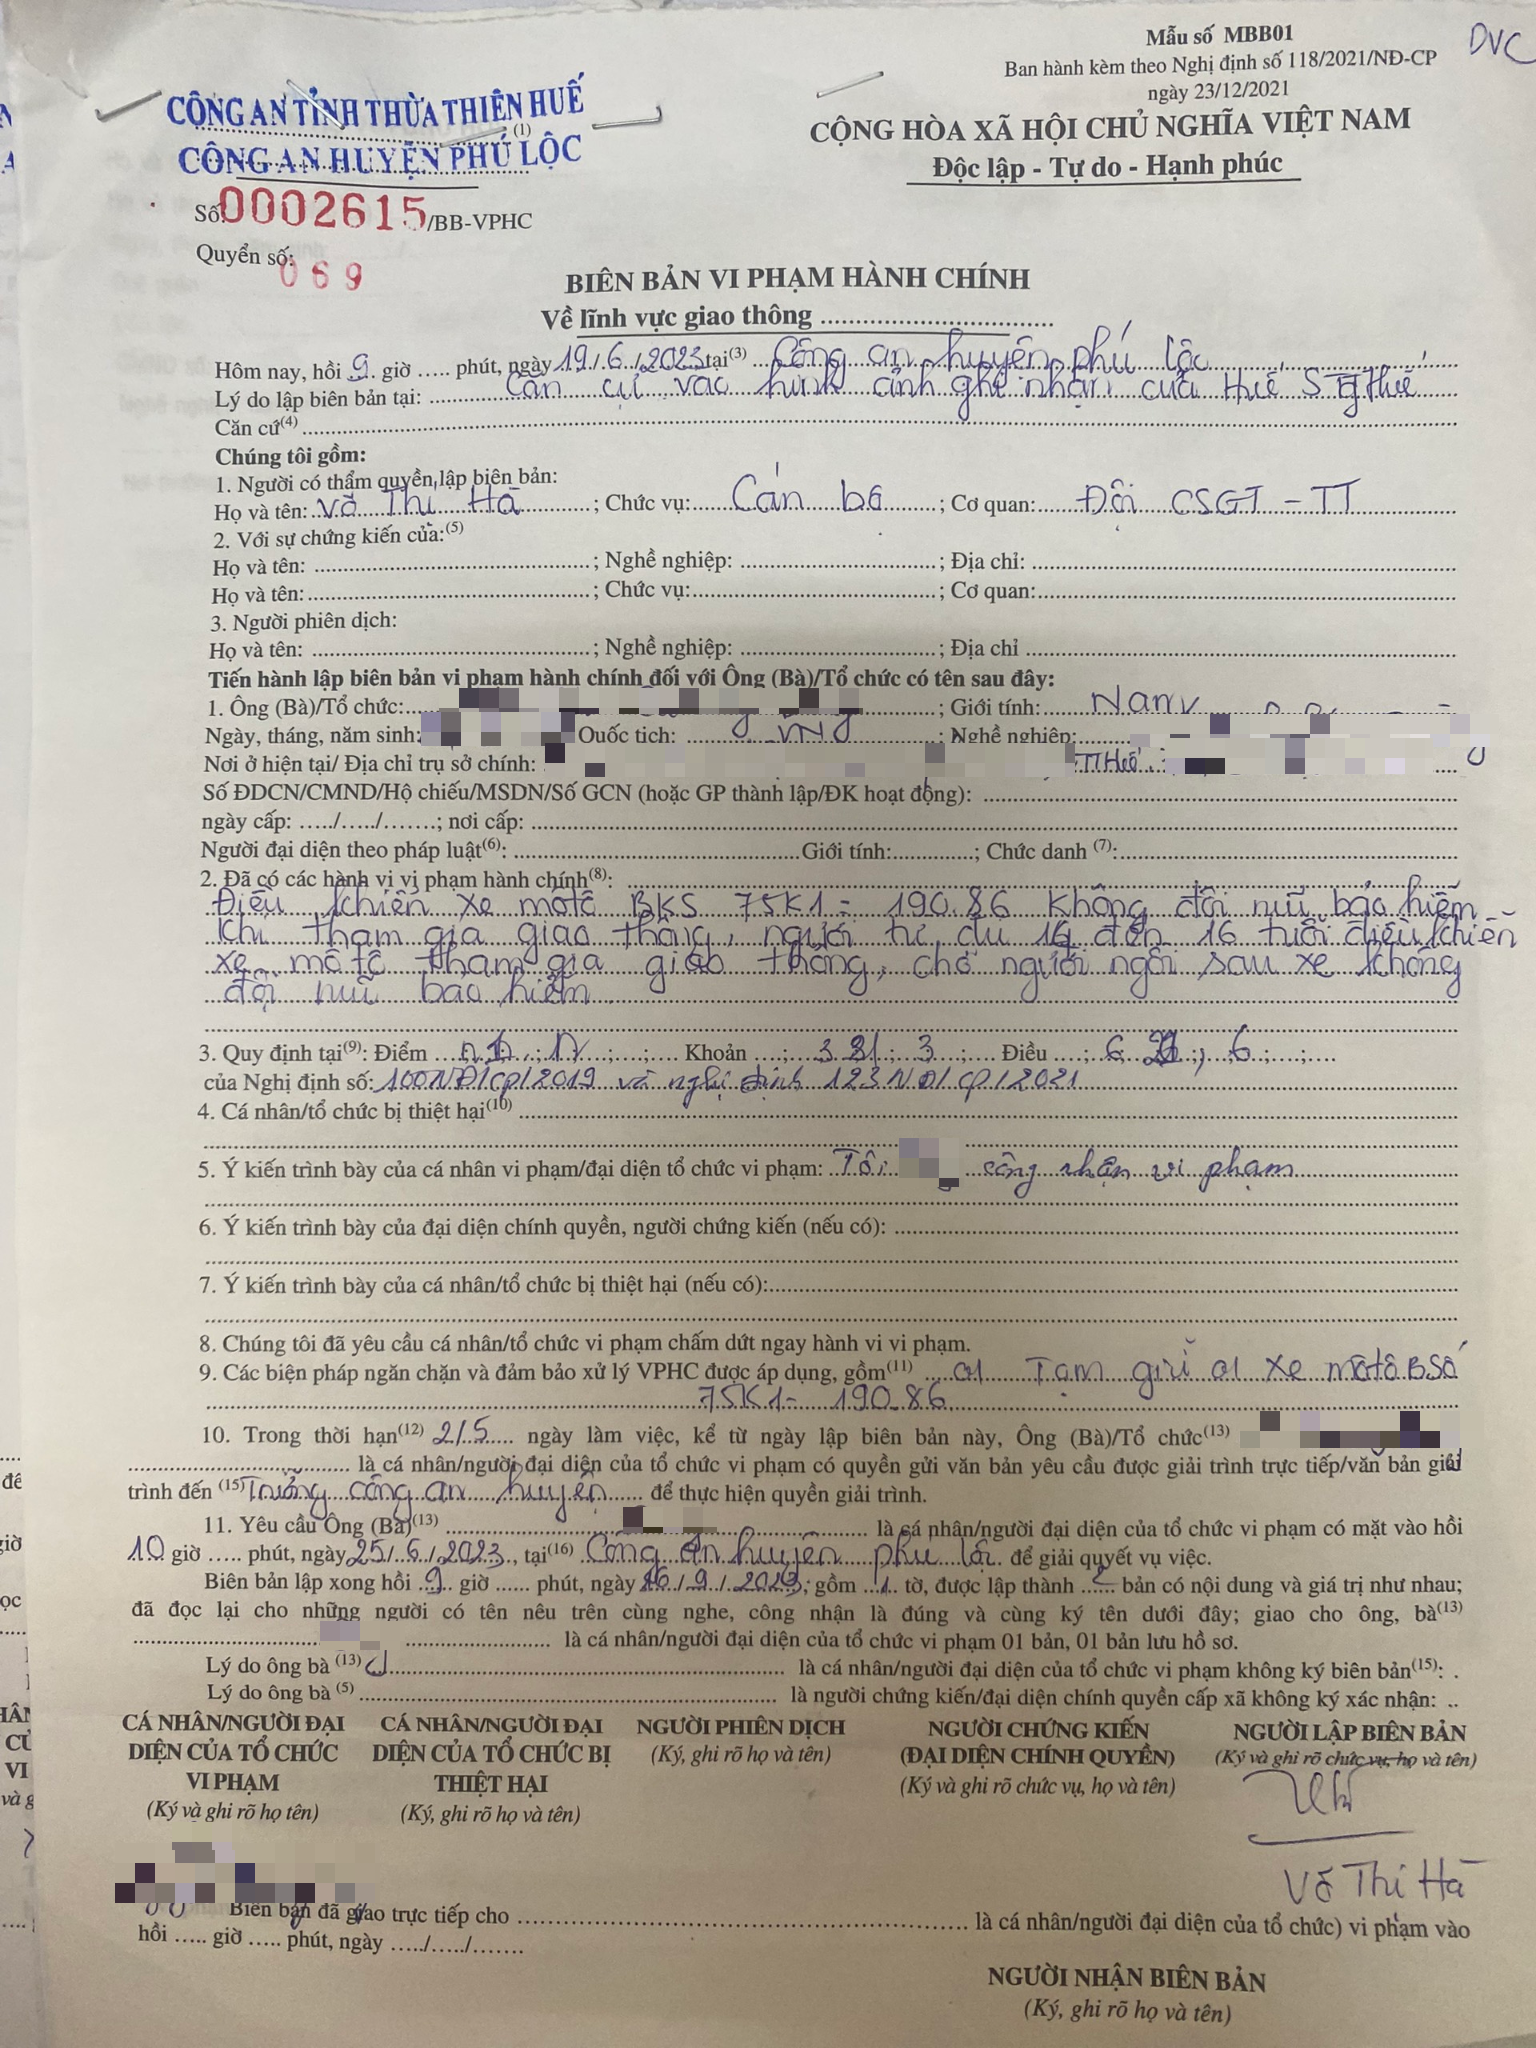 Mẫu số MBB01
DVC
Ban hành kèm theo Nghị định số 118/2021/NĐ-CP
ngày 23/12/2021
CÔNG AN TỈNH THỪA THIÊN HUẾ
(1)
CÔNG AN HUYỆN PHÚ LỘC
CỘNG HÒA XÃ HỘI CHỦ NGHĨA VIỆT NAM
Độc lập - Tự do - Hạnh phúc
Số: 0002615/BB-VPHC
Quyển số: 069
BIÊN BẢN VI PHẠM HÀNH CHÍNH
Về lĩnh vực giao thông ..................
Hôm nay, hồi 9 giờ ..... phút, ngày 19/6/2023 tại(3) Công an huyện phú lộc
Lý do lập biên bản tại: Căn cứ vào hình ảnh ghi nhận của Huế S
Căn cứ(4) ..................
Chúng tôi gồm:
1. Người có thẩm quyền lập biên bản:
Họ và tên: Võ Thị Hà ; Chức vụ: Cán bộ ; Cơ quan: Đội CSGT - TT
2. Với sự chứng kiến của:(5)
Họ và tên: ..................; Nghề nghiệp: ..................; Địa chỉ: ..................
Họ và tên: ..................; Chức vụ: ..................; Cơ quan: ..................
3. Người phiên dịch:
Họ và tên: ..................; Nghề nghiệp: ..................; Địa chỉ ..................
Tiến hành lập biên bản vi phạm hành chính đối với Ông (Bà)/Tổ chức có tên sau đây:
1. Ông (Bà)/Tổ chức: ; Giới tính: Nam
Ngày, tháng, năm sinh: Quốc tịch: VN ; Nghề nghiệp:
Nơi ở hiện tại/ Địa chỉ trụ sở chính: TTHuế
Số ĐDCN/CMND/Hộ chiếu/MSDN/Số GCN (hoặc GP thành lập/ĐK hoạt động): ..................
ngày cấp: ...../...../.......; nơi cấp: ..................
Người đại diện theo pháp luật(6): ..................Giới tính:............; Chức danh (7):..................
2. Đã có các hành vi vi phạm hành chính(8): ..................
Điều khiển xe môtô BKS 75K1 - 190.86 không đội mũ bảo hiểm
khi tham gia giao thông, người từ đủ 14 đến 16 tuổi điều khiển
xe mô tô tham gia giao thông, chở người ngồi sau xe không
đội mũ bảo hiểm
3. Quy định tại(9): Điểm Khoản 3 Điều 6 21; 6
của Nghị định số: 100NĐ/CP/2019 và nghị định 123NĐ/CP/2021
4. Cá nhân/tổ chức bị thiệt hại(10) ..................
5. Ý kiến trình bày của cá nhân vi phạm/đại diện tổ chức vi phạm: Tôi công nhận vi phạm
6. Ý kiến trình bày của đại diện chính quyền, người chứng kiến (nếu có): ..................
7. Ý kiến trình bày của cá nhân/tổ chức bị thiệt hại (nếu có):..................
8. Chúng tôi đã yêu cầu cá nhân/tổ chức vi phạm chấm dứt ngay hành vi vi phạm.
9. Các biện pháp ngăn chặn và đảm bảo xử lý VPHC được áp dụng, gồm(11) Tạm giữ 01 xe môtô BSố
75K1 - 190.86
10. Trong thời hạn(12) 2/5 ngày làm việc, kể từ ngày lập biên bản này, Ông (Bà)/Tổ chức(13)
.................. là cá nhân/người đại diện của tổ chức vi phạm có quyền gửi văn bản yêu cầu được giải trình trực tiếp/văn bản giải
trình đến (15) Trưởng công an huyện để thực hiện quyền giải trình.
11. Yêu cầu Ông (Bà)(13) .................. là cá nhân/người đại diện của tổ chức vi phạm có mặt vào hồi
10 giờ ..... phút, ngày 25/6/2023, tại(16) Công an huyện phú lộc để giải quyết vụ việc.
Biên bản lập xong hồi 9 giờ ...... phút, ngày /9/2023; gồm 1 tờ, được lập thành 2 bản có nội dung và giá trị như nhau;
đã đọc lại cho những người có tên nêu trên cùng nghe, công nhận là đúng và cùng ký tên dưới đây; giao cho ông, bà(13)
.................. là cá nhân/người đại diện của tổ chức vi phạm 01 bản, 01 bản lưu hồ sơ.
Lý do ông bà (13) .................. là cá nhân/người đại diện của tổ chức vi phạm không ký biên bản(15): .
Lý do ông bà (5) .................. là người chứng kiến/đại diện chính quyền cấp xã không ký xác nhận: ..
CÁ NHÂN/NGƯỜI ĐẠI DIỆN CỦA TỔ CHỨC VI PHẠM
(Ký và ghi rõ họ tên)
CÁ NHÂN/NGƯỜI ĐẠI DIỆN CỦA TỔ CHỨC BỊ THIỆT HẠI
(Ký, ghi rõ họ và tên)
NGƯỜI PHIÊN DỊCH
(Ký, ghi rõ họ và tên)
NGƯỜI CHỨNG KIẾN
(ĐẠI DIỆN CHÍNH QUYỀN)
(Ký và ghi rõ chức vụ, họ và tên)
NGƯỜI LẬP BIÊN BẢN
(Ký và ghi rõ chức vụ, họ và tên)
Võ Thị Hà
Biên bản đã giao trực tiếp cho .................. là cá nhân/người đại diện của tổ chức) vi phạm vào
hồi ..... giờ ..... phút, ngày ...../...../.......
NGƯỜI NHẬN BIÊN BẢN
(Ký, ghi rõ họ và tên)